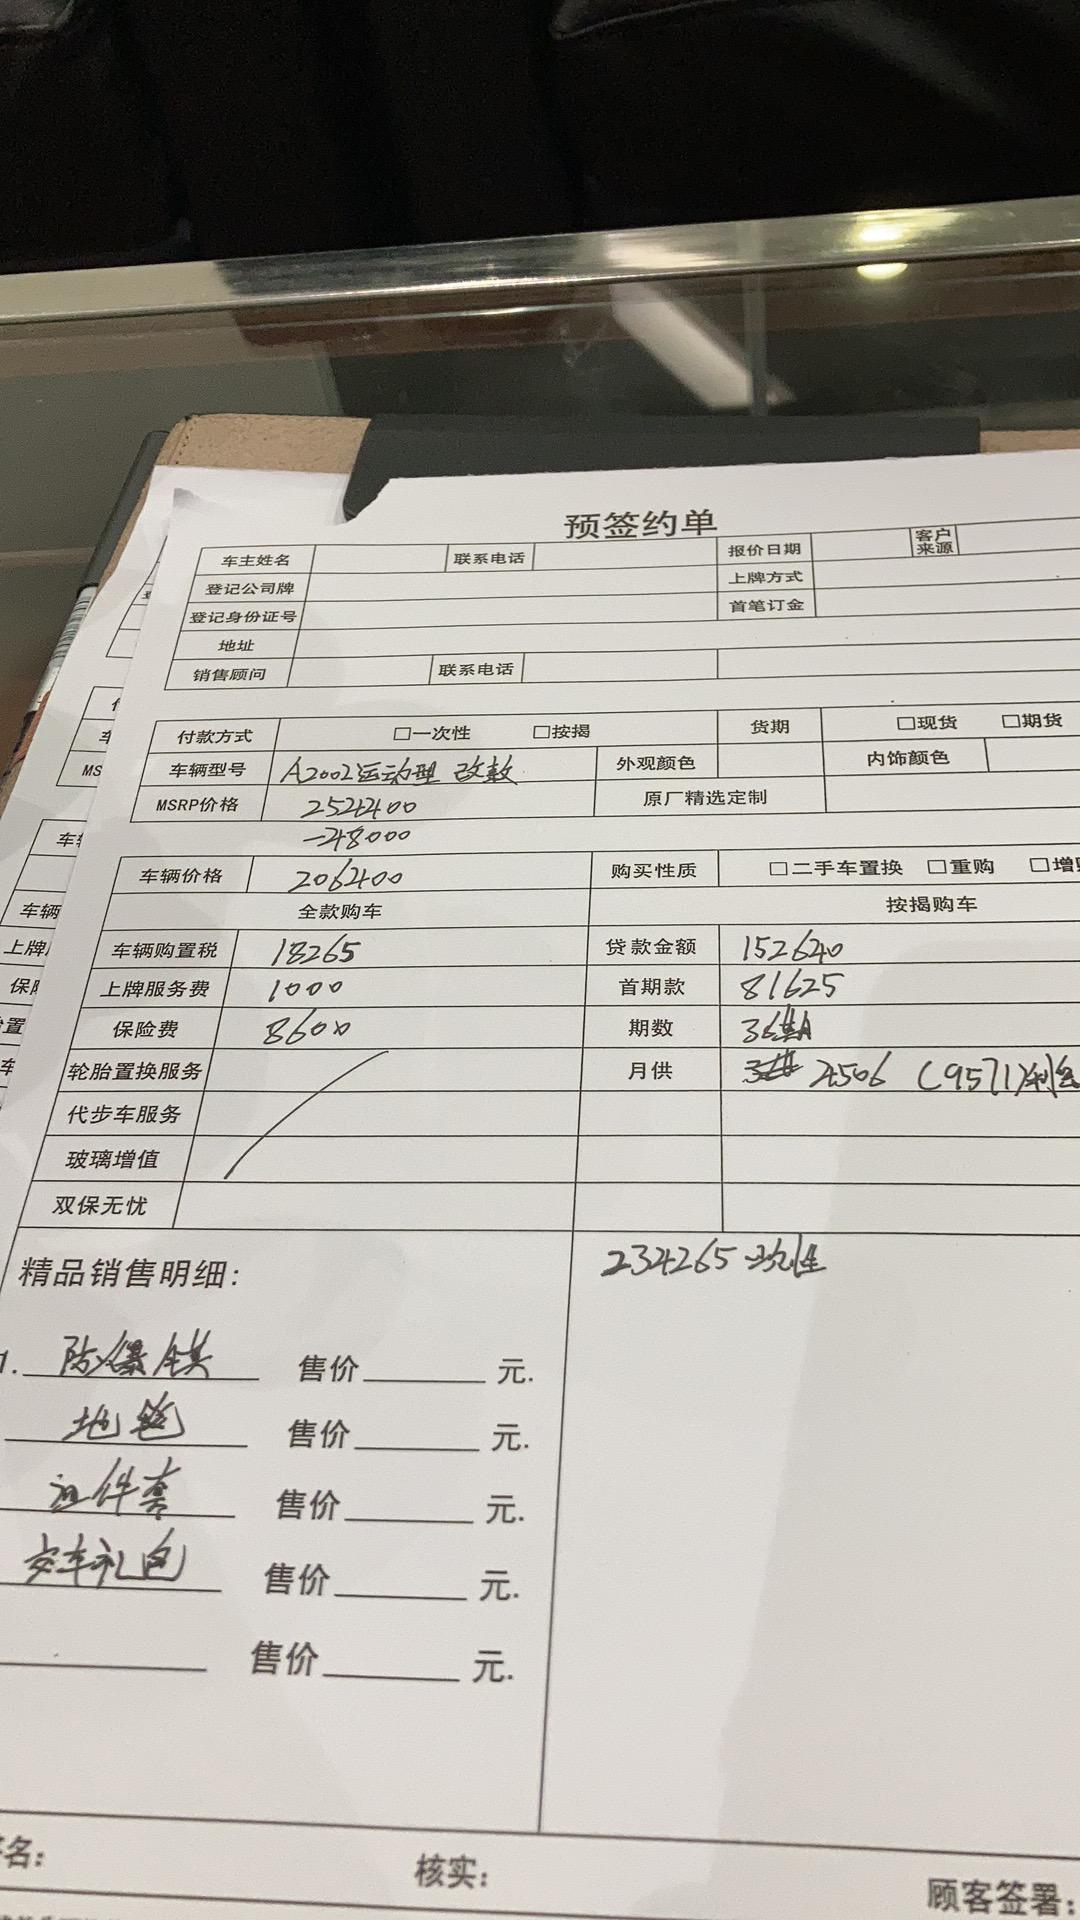 预签约单
车主姓名 联系电话 报价日期 客户来源
登记公司牌 上牌方式
登记身份证号 首笔订金
地址
销售顾问 联系电话
付款方式 □一次性 □按揭 货期 □现货 □期货
车辆型号 A200L运动型 改款 外观颜色 内饰颜色
MSRP价格 252400 原厂精选定制
-48000
车辆价格 206400 购买性质 □二手车置换 □重购 □增
全款购车 按揭购车
车辆购置税 18265 贷款金额 152640
上牌服务费 1000 首期款 81625
保险费 8600 期数 36期
轮胎置换服务 月供 4506 (9571)利息
代步车服务
玻璃增值
双保无忧
精品销售明细: 234265
1. 防爆膜 售价 元.
地毯 售价 元.
证件套 售价 元.
交车礼包 售价 元.
售价 元.
名: 核实: 顾客签署:
MS
车
车辆
上牌